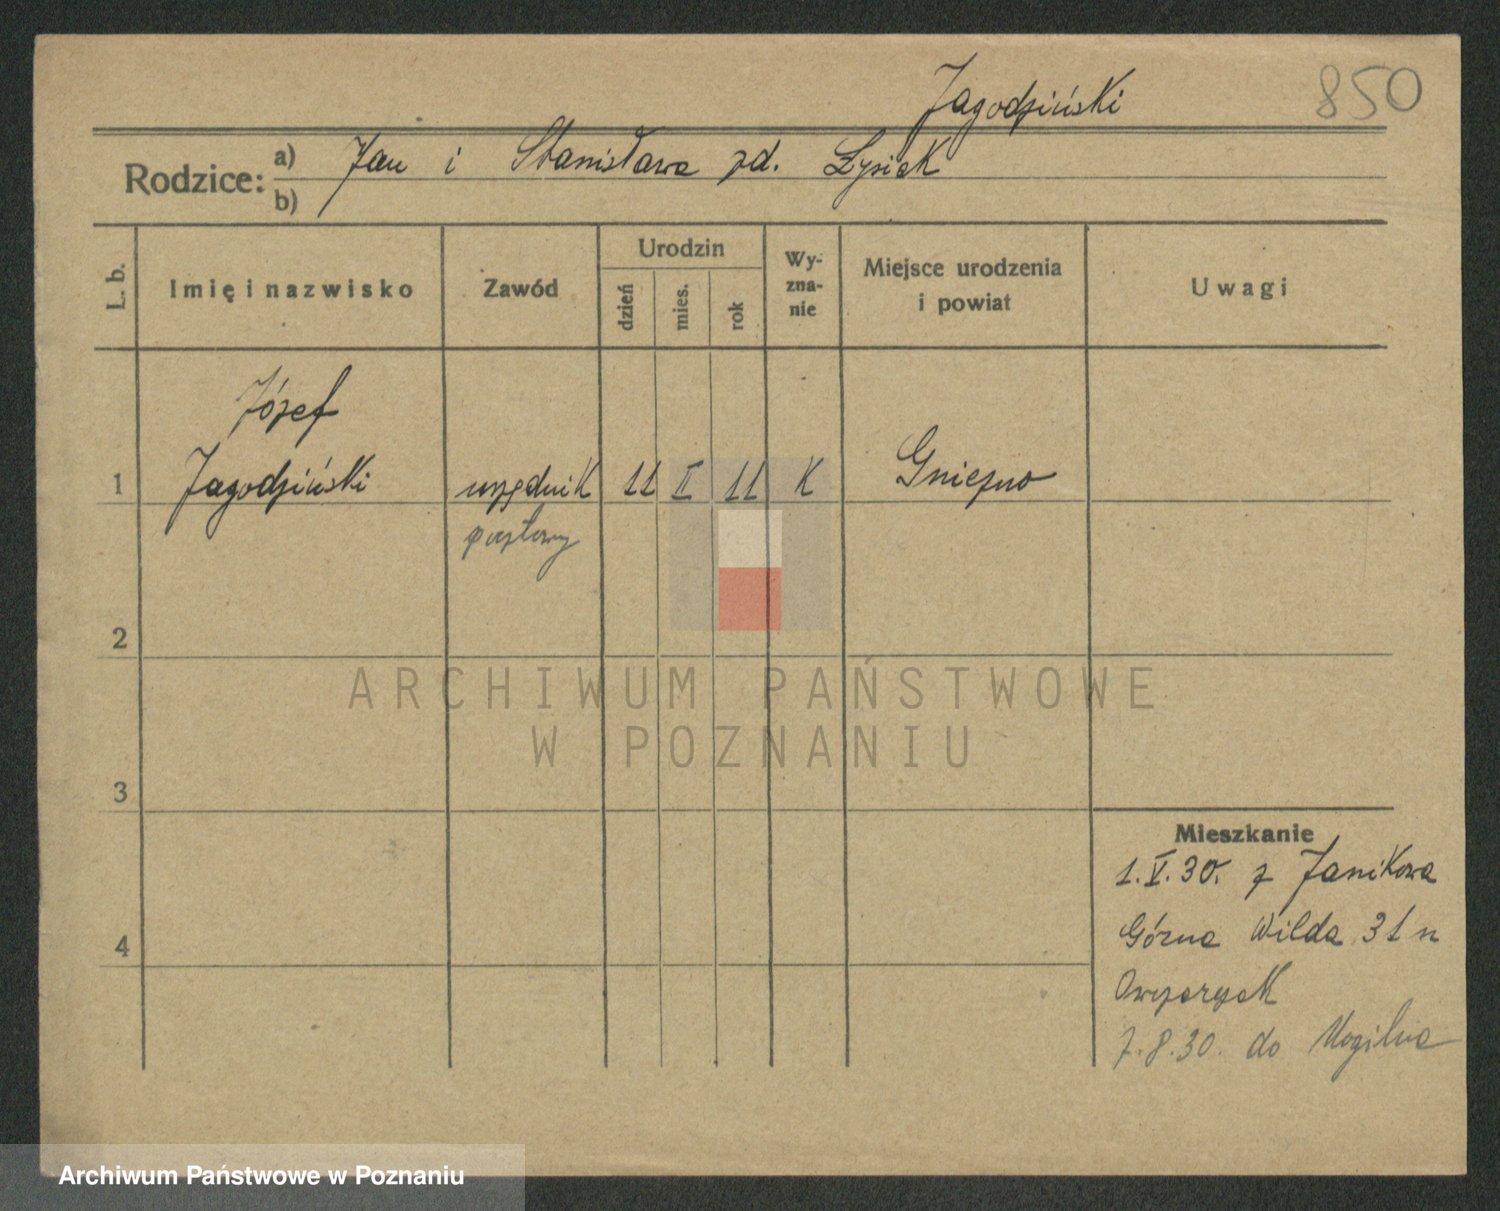 Jagodziński
850
Rodzice: a) Jan i Stanisława zd. Łysiak
b)
L. b.
Imię i nazwisko
Zawód
Urodzin
dzień
mies.
rok
Wy-
zna-
nie
Miejsce urodzenia
i powiat
Uwagi
Józef
1 Jagodziński urzędnik 11 II 11 K Gniezno
pocztowy
2
3
4
Mieszkanie
1.V.30. z Janikowa
Górna Wilda 31 n
Owczarzak
7.8.30. do Mogilna
ARCHIWUM PAŃSTWOWE
W POZNANIU
Archiwum Państwowe w Poznaniu